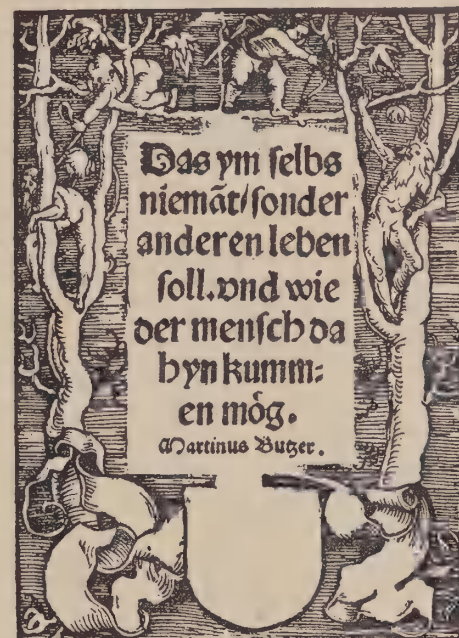 Das ym selbs
niemãt/ sonder
anderen leben
soll. vnd wie
der mensch da
hyn kumm⸗
en mög.
Martinus Butzer.